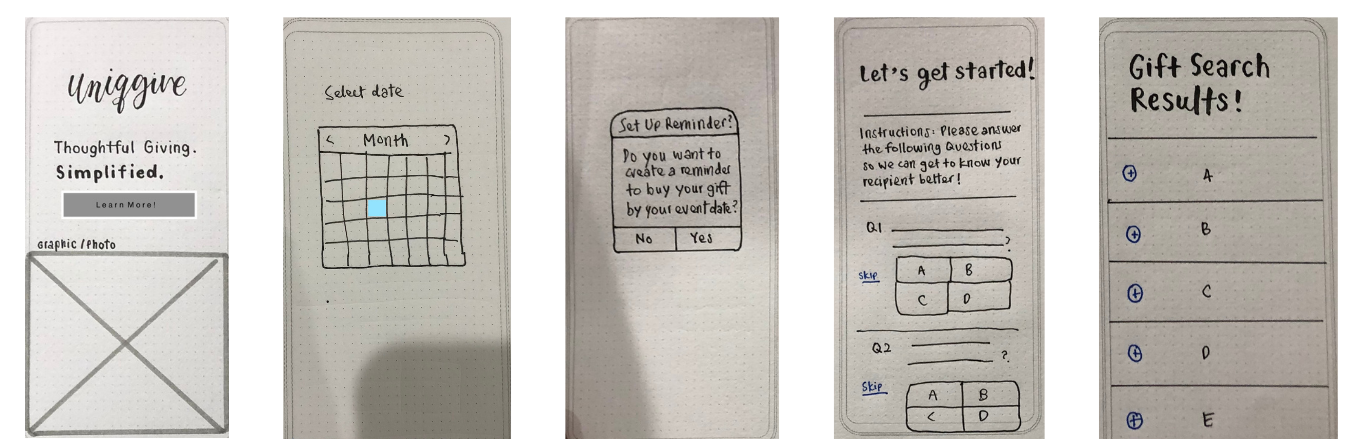 Uniqgive
Thoughtful Giving.
Simplified.
Learn More!
Graphic / Photo
Select date
< Month >
Set Up Reminder?
Do you want to
create a reminder
to buy your gift
by your event date?
No Yes
Let's get started!
Instructions: Please answer
the following Questions
so we can get to know your
recipient better!
Q1
?
Skip
A B
C D
Q2
?
Skip
A B
C D
Gift Search
Results!
+ A
+ B
+ C
+ D
+ E